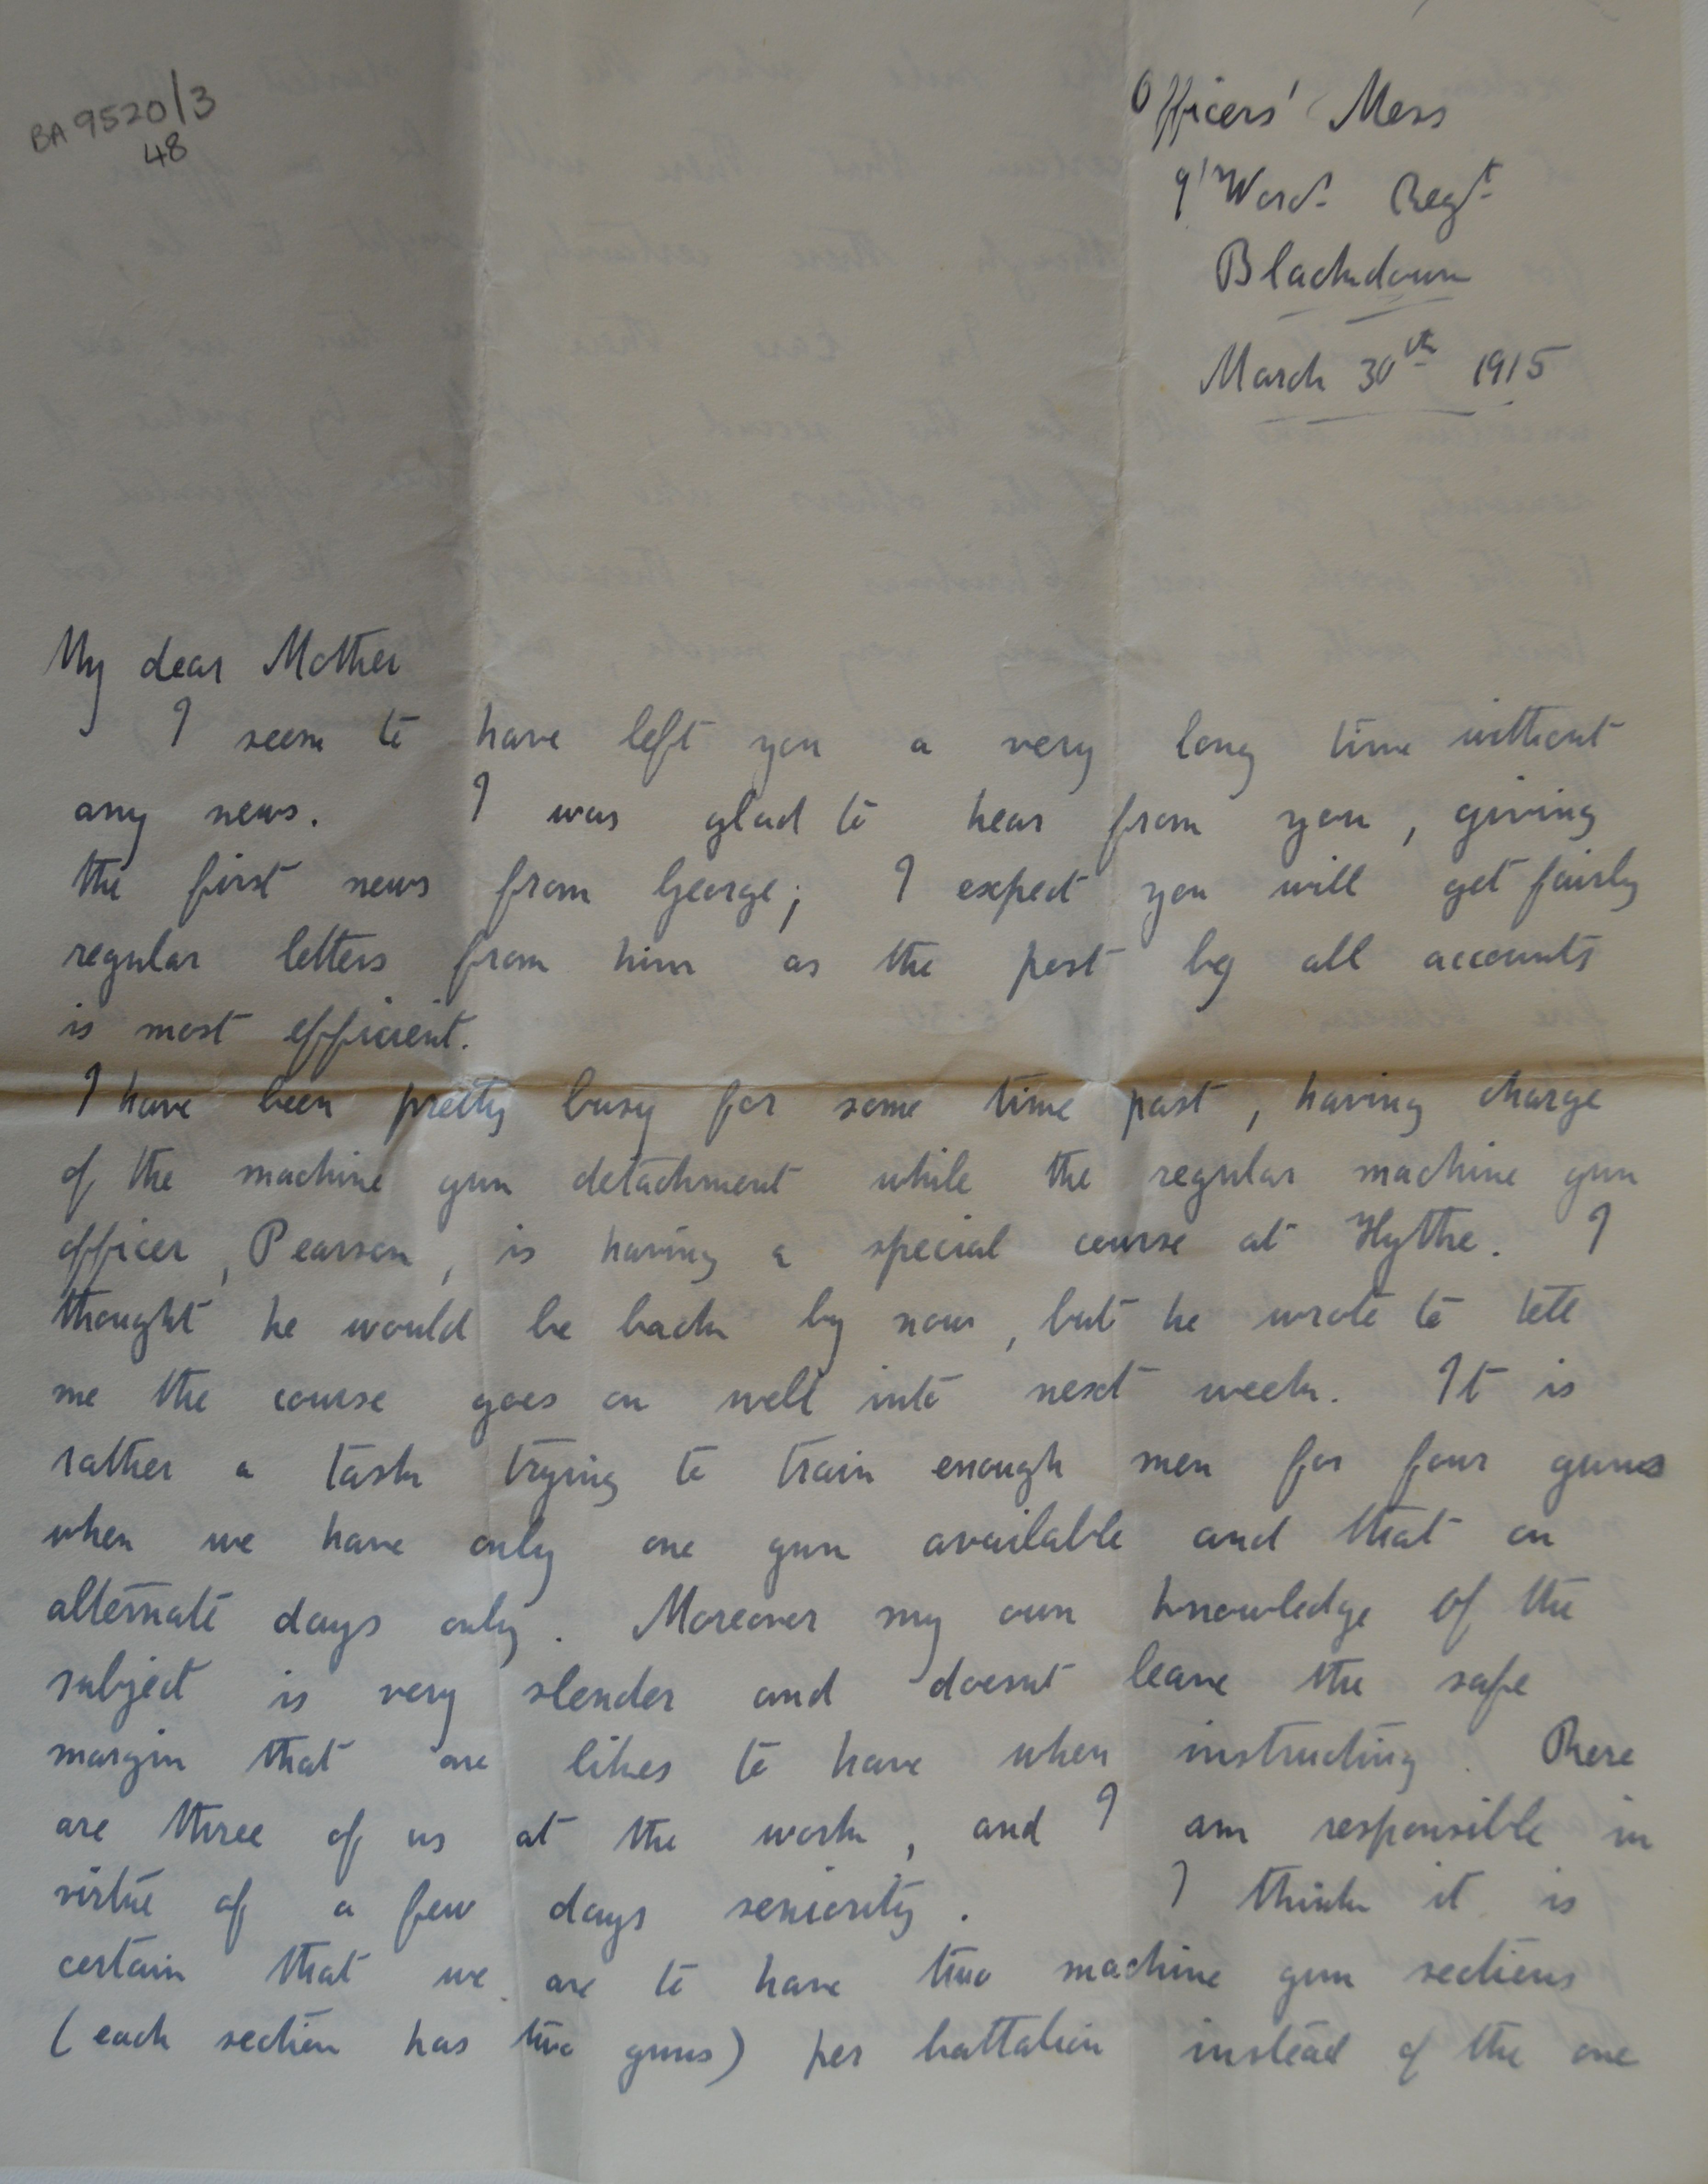 BA 9520/3
48
Officers' Mess
9th Worc. Regt.
Blackdown
March 30th 1915
My dear Mother
I seem to have left you a very long time without
any news. I was glad to hear from you, giving
the first news from George; I expect you will get fairly
regular letters from him as the post by all accounts
is most efficient.
I have been pretty busy for some time past, having charge
of the machine gun detachment while the regular machine gun
officer, Pearson, is having a special course at Hythe. I
thought he would be back by now, but he wrote to tell
me the course goes on well into next week. It is
rather a task trying to train enough men for four guns
when we have only one gun available and that on
alternate days only. Moreover my own knowledge of the
subject is very slender and doesnt leave the safe
margin that one likes to have when instructing. There
are three of us at the work, and I am responsible in
virtue of a few days seniority. I think it is
certain that we are to have two machine gun sections
(each section has two guns) per battalion instead of the one